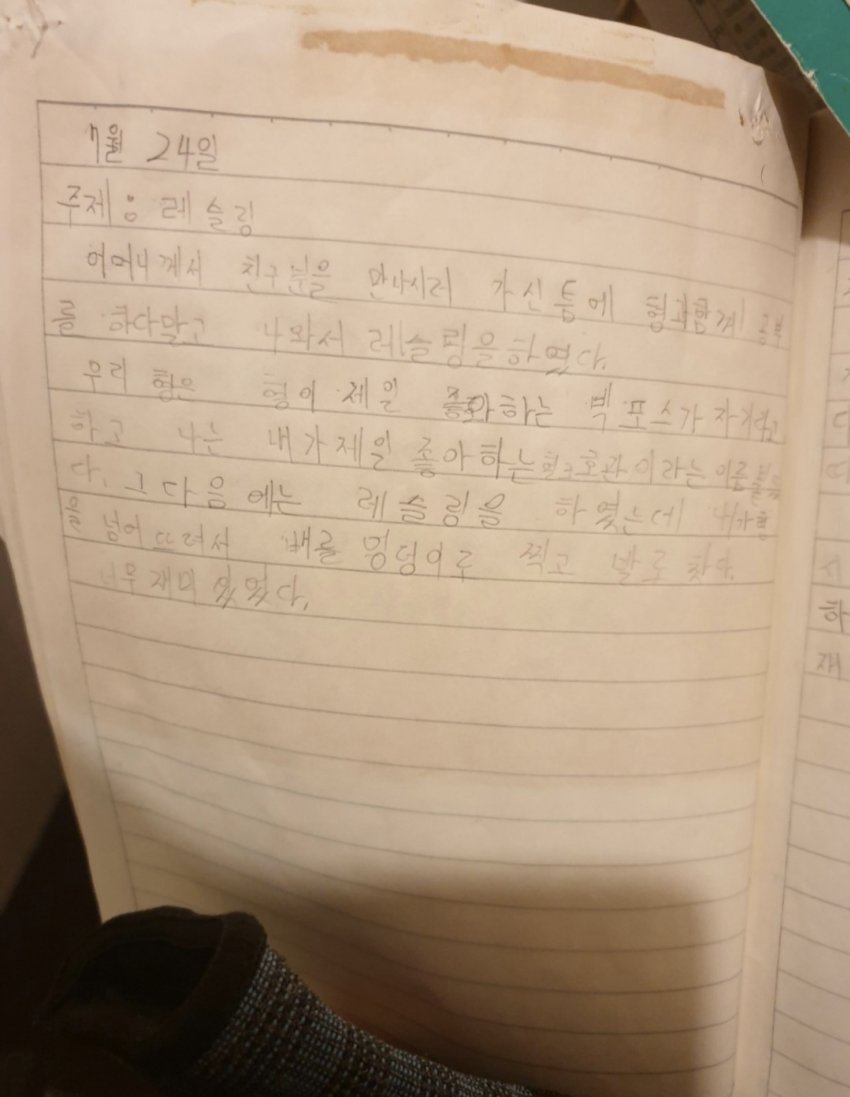 7월 24일
주제: 레슬링
어머니께서 친구분을 만나시러 가신 틈에 형과함께 공부
를 하다말고 나와서 레슬링을하였다.
우리 형은 형이 제일 좋아하는 빅 포스가 자기라고
하고 나는 내가제일 좋아하는 이라는 이름
다. 그 다음에는 레슬링을 하였는데 내가형
을 넘어 뜨려서 배를 엉덩이로 찍고 발로 찼다.
너무 재미 있었다.
하
재